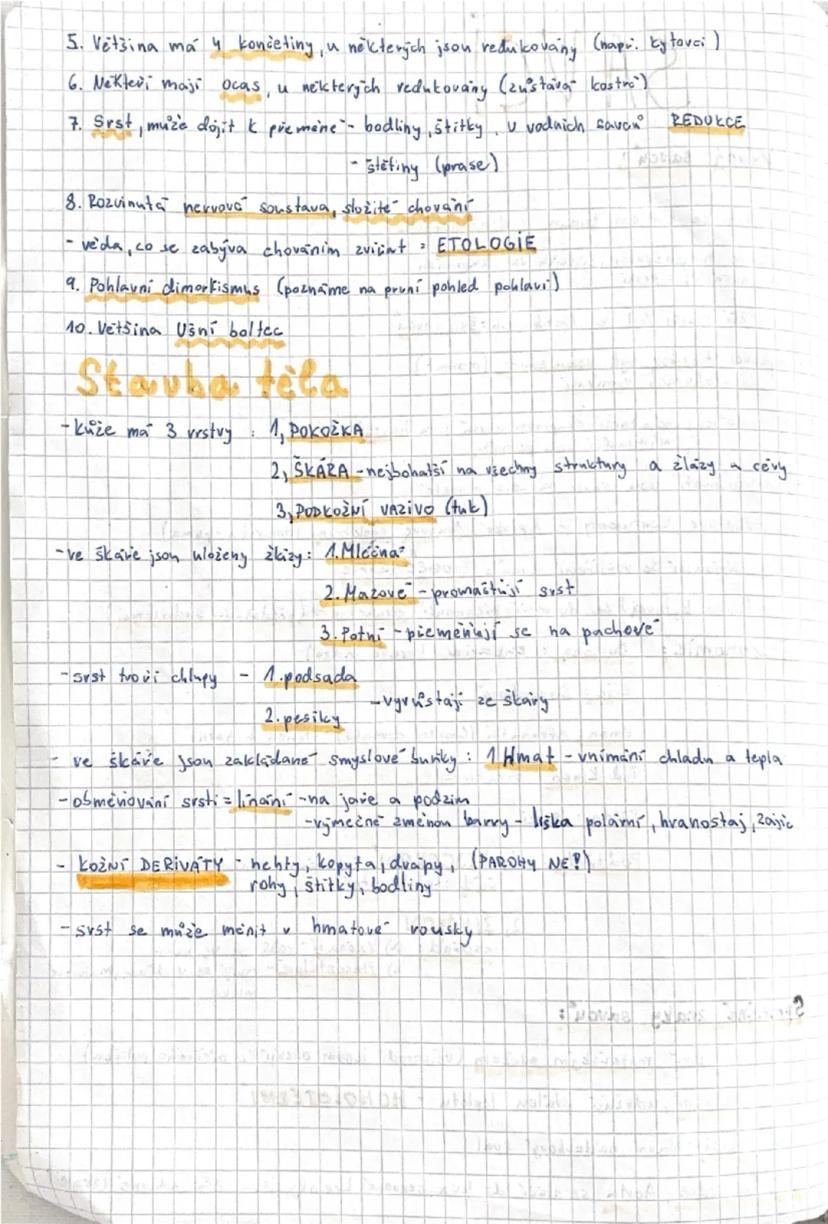 5. Většina má 4 končetiny, u některých jsou redukovány (např. kytovci)
6. Někteří mají ocas, u některých redukovány (zůstává kostrč)
7. Srst, může dojít k přeměně - bodliny, štítky, u vodních savců REDUKCE
- štětiny (prase)
8. Rozvinutá nervová soustava, složité chování
- věda, co se zabývá chováním zvířat = ETOLOGIE
9. Pohlavní dimorkismus (poznáme na první pohled pohlaví)
10. Většina Ušní boltec
Stavba těla
- kůže má 3 vrstvy : 1, POKOŽKA
2, ŠKÁRA - nejbohatší na všechny struktury a žlázy a cévy
3, PODKOŽNÍ VAZIVO (tuk)
- ve škáře jsou uloženy žlázy: 1. Mléčná
2. Mazové - promašťují srst
3. Potní - přeměňují se na pachové
- srst tvoří chlupy - 1. podsada
- vyrůstají ze škáry
2. pesíky
- ve škáře jsou zakládané smyslové buňky : 1 Hmat - vnímání chladu a tepla
- obměňování srsti = línání - na jaře a podzim
- výmečně změnou barvy - liška polární, hranostaj, zajíc
- KOŽNÍ DERIVÁTY - nehty, kopyta, drápy, (PAROHY NE!)
rohy, štítky, bodliny
- srst se může měnit v hmatové vousky